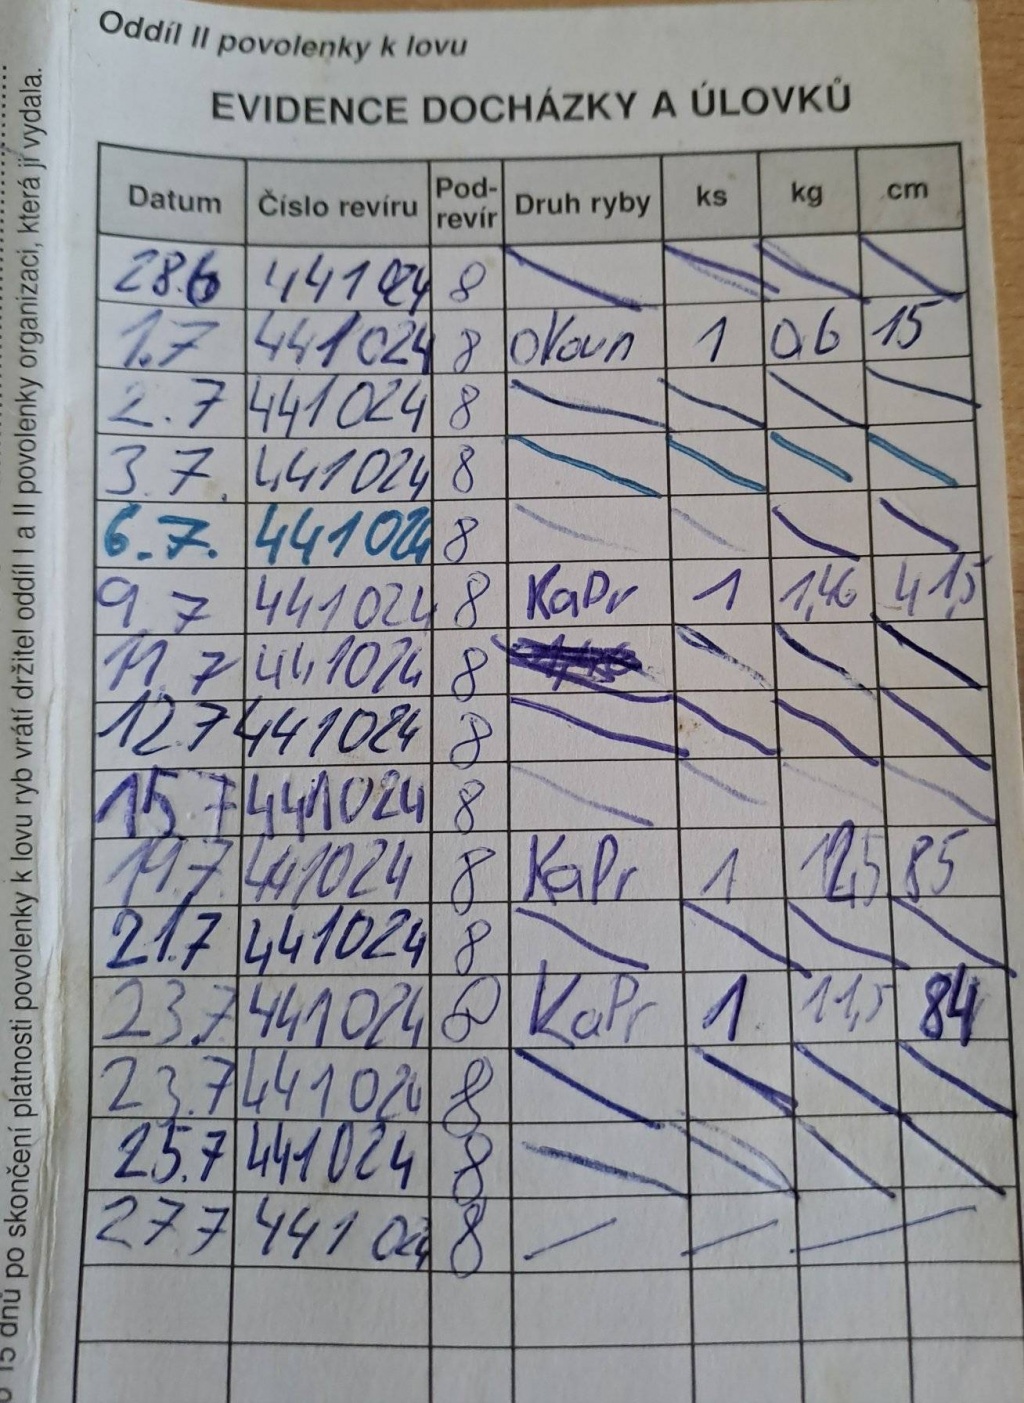 Oddíl II povolenky k lovu
EVIDENCE DOCHÁZKY A ÚLOVKŮ
Datum Číslo revíru Pod-revír Druh ryby ks kg cm
28.6 441024 8
1.7 441024 8 okoun 1 0,6 15
2.7 441024 8
3.7. 441024 8
6.7. 441024 8
9.7 441024 8 KaPr 1 1,46 41,5
11.7 441024 8
12.7 441024 8
15.7 441024 8
19.7 441024 8 KaPr 1 12,5 85
21.7 441024 8
23.7 441024 8 KaPr 1. 11,5 84
23.7 441024 8
25.7 441024 8
27 7 441 024 8
15 dnů po skončení platnosti povolenky k lovu ryb vrátí držitel oddíl I a II povolenky organizaci, která ji vydala.